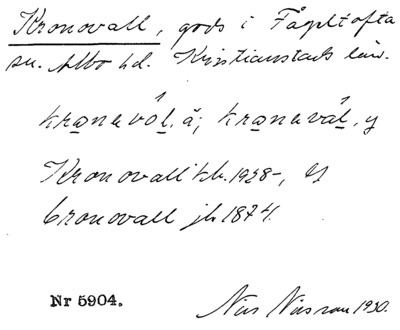 Kronovall, gods i Fågeltofta
sn. Albo hd. Kristianstads län.
kronavól, ä; kronavál, y
Kronovall kb. 1938-, Ey
Cronovall jb 1874.
Nr 5904. Nils Nilsson 1930.